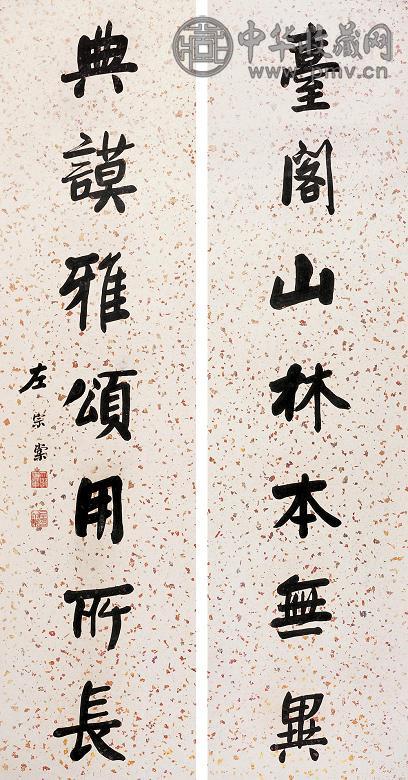 臺閣山林本無異
典謨雅頌用所長
左宗棠
中华收藏网
www.pmv.cn